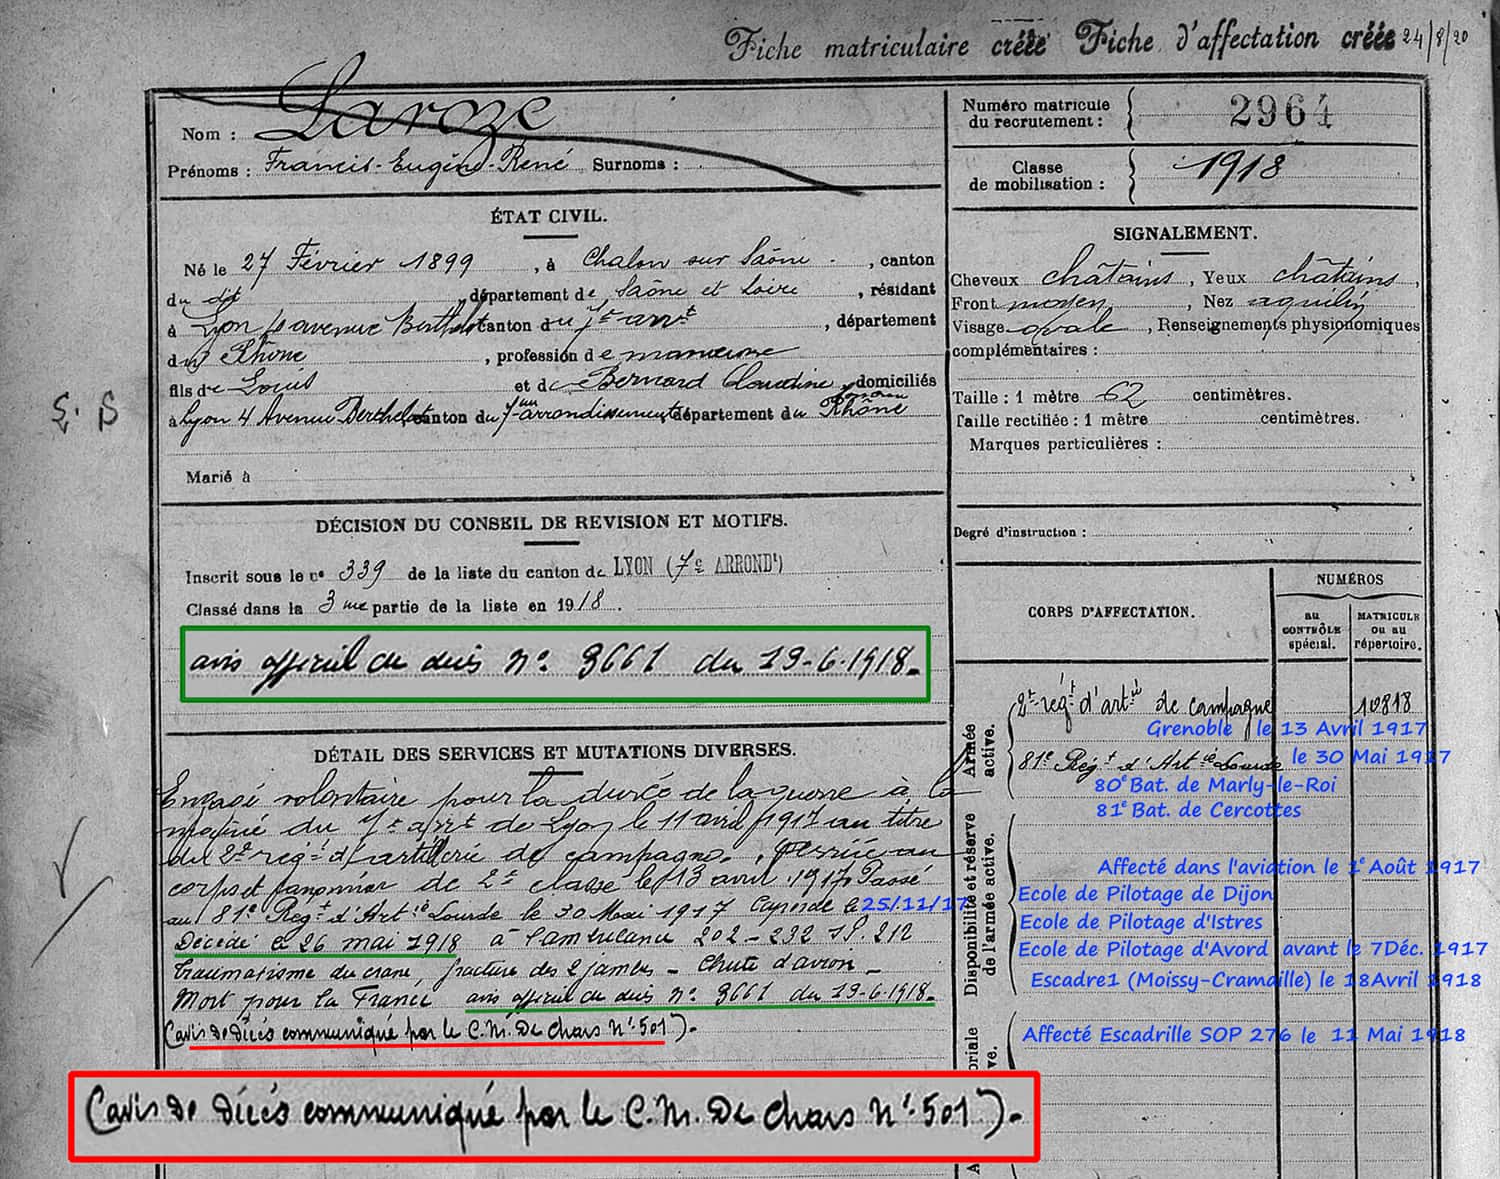 Fiche matriculaire créée Fiche d'affectation créée 24/8/20
Nom : Laroze
Prénoms : Francis-Eugène-René Surnoms :
Numéro matricule du recrutement : 2964
Classe de mobilisation : 1918
ÉTAT CIVIL.
Né le 27 Février 1899, à Chalon sur Saône, canton
du dit, département de Saône et Loire, résidant
à Lyon avenue Berthelot canton du 7e arrt, département
du Rhône, profession de
fils de Louis et de Bernard Claudine, domiciliés
à Lyon 4 Avenue Berthelot canton du 7me arrondissement, département du Rhône
Marié à
SIGNALEMENT.
Cheveux châtains, Yeux châtains,
Front moyen, Nez aquilin
Visage ovale, Renseignements physionomiques
complémentaires :
Taille : 1 mètre 62 centimètres.
Taille rectifiée : 1 mètre centimètres.
Marques particulières :
Degré d'instruction :
DÉCISION DU CONSEIL DE REVISION ET MOTIFS.
Inscrit sous le no 339 de la liste du canton de LYON (7e ARRONDt)
Classé dans la 3me partie de la liste en 1918.
avis officiel de décès No. 9661 du 19-6-1918.
DÉTAIL DES SERVICES ET MUTATIONS DIVERSES.
Engagé volontaire pour la durée de la guerre à la
mairie du 7e arrt de Lyon le 11 avril 1917 au titre
du 2e régt d'artillerie de campagne. Arrivé au
corps et canonnier de 2e classe le 13 avril 1917. Passé
au 81e Régt d'Artie Lourde le 30 Mai 1917 Caporal le 25/11/17
Décédé le 26 mai 1918 à l'ambulance 202-232 SP. 212
traumatisme du crâne fracture des 2 jambes - Chute d'avion -
Mort pour la France avis officiel de décès No. 9661 du 19-6-1918.
(avis de décès communiqué par le C.M. De chars No 501).
(avis de décès communiqué par le C.M. De chars No 501).
CORPS D'AFFECTATION.
NUMÉROS
au CONTRÔLE spécial.
MATRICULE ou au répertoire.
Armée active.
2e régt d'artie de campagne 10818
Grenoble le 13 Avril 1917
81e Régt d'Artie Lourde le 30 Mai 1917
80e Bat. de Marly-le-Roi
81e Bat. de Cercottes
Disponibilité et réserve de l'armée active.
Affecté dans l'aviation le 1e Août 1917
Ecole de Pilotage de Dijon
Ecole de Pilotage d'Istres
Ecole de Pilotage d'Avord avant le 7Déc. 1917
Escadre1 (Moissy-Cramaille) le 18Avril 1918
Affecté Escadrille SOP 276 le 11 Mai 1918